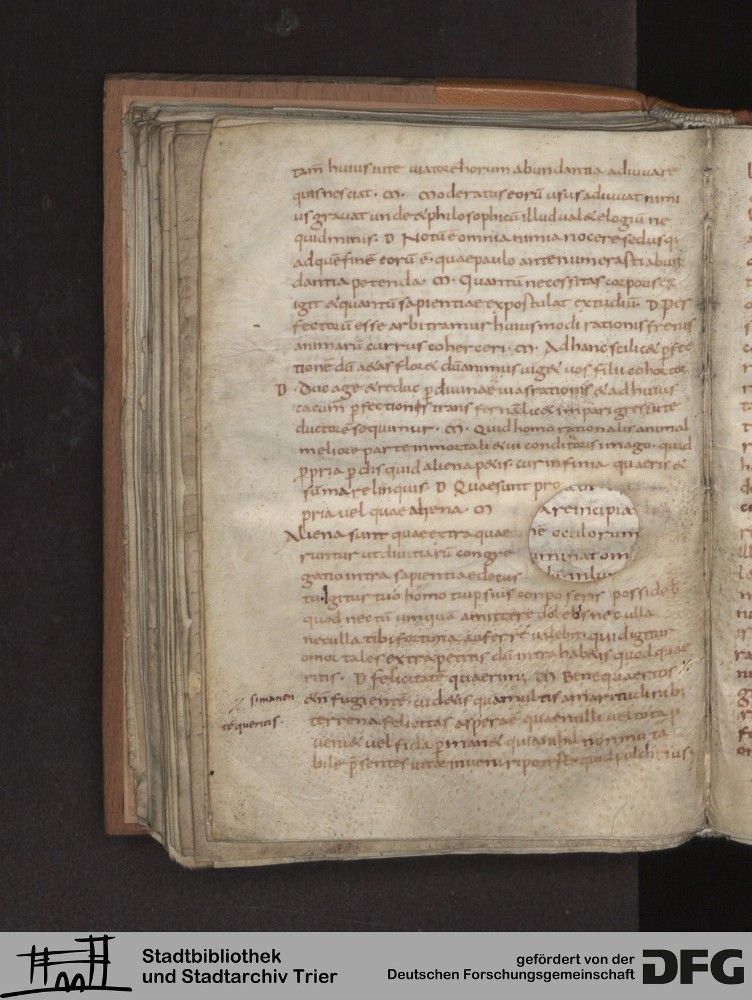 tam huius uite uiatorẽ horum abundantia adiuuare
quis nesciat · m · moderatus eorũ usus adiuuat nimi
us grauat unde & philosophicũ illud ual& elogiũ ne
quid nimis · D Notũ ẽ omnia nimia nocere sed usq;
ad quẽ finẽ eorũ ẽ · quae paulo ante numerasti abun
dantia petenda · m · Quantũ necessitas corporis ex
igit & quantũ sapientiae expostulat extudiũ · D per
fectorũ esse arbitramur huiusmodi rationis frenis
animarũ currus coherceri · m · Ad hanc scilic& ꝑfec
tionẽ dũ a&as flor& dũ animus uig& uos filii cohortor
D · Duc age & reduc ꝑ diuinae uias rationis & ad huius
cacum̃ ꝑfectionis trans fer nã lic& impari gressu te
ductorẽ sequimur · m · Quid homo rationalis animal
meliore parte inmortali & ui conditoris imago · quid
ꝓpria ꝑdis quid aliena p&is · cur infima quaeris &
summa relinquis · D Quae sunt pro
pria uel quae aliena · m
Aliena sunt quae extra quae
runtur ut diuitiarũ congre
gatio intra sapientiae decus ·
arcincipia
nẽ oculorum
uminat om
tu igitur tuo homo tuipsius conpos eris possideb
quod nec tũ umquã amittere doleb nec ulla
nec ulla tibi fortuna auferre ualebit · quid igitur
o mortales extra petitis dũ intra habeatis quod quae
ritis · D felicitatẽ quaerimus m Bene quaeritis
si manen
tẽ queritis ·
& nñ fugientẽ · uid&is quã multis amaritudinibus
terrena felicitas asperae quae nulli uel tota ꝑ
ueni& uel fida ꝑman& quia nihil nonmuta
bile p̃sentes uitae inueniri potest · quid pulchrius ·
Stadtbibliothek
und Stadtarchiv Trier
gefördert von der
Deutschen Forschungsgemeinschaft
DFG